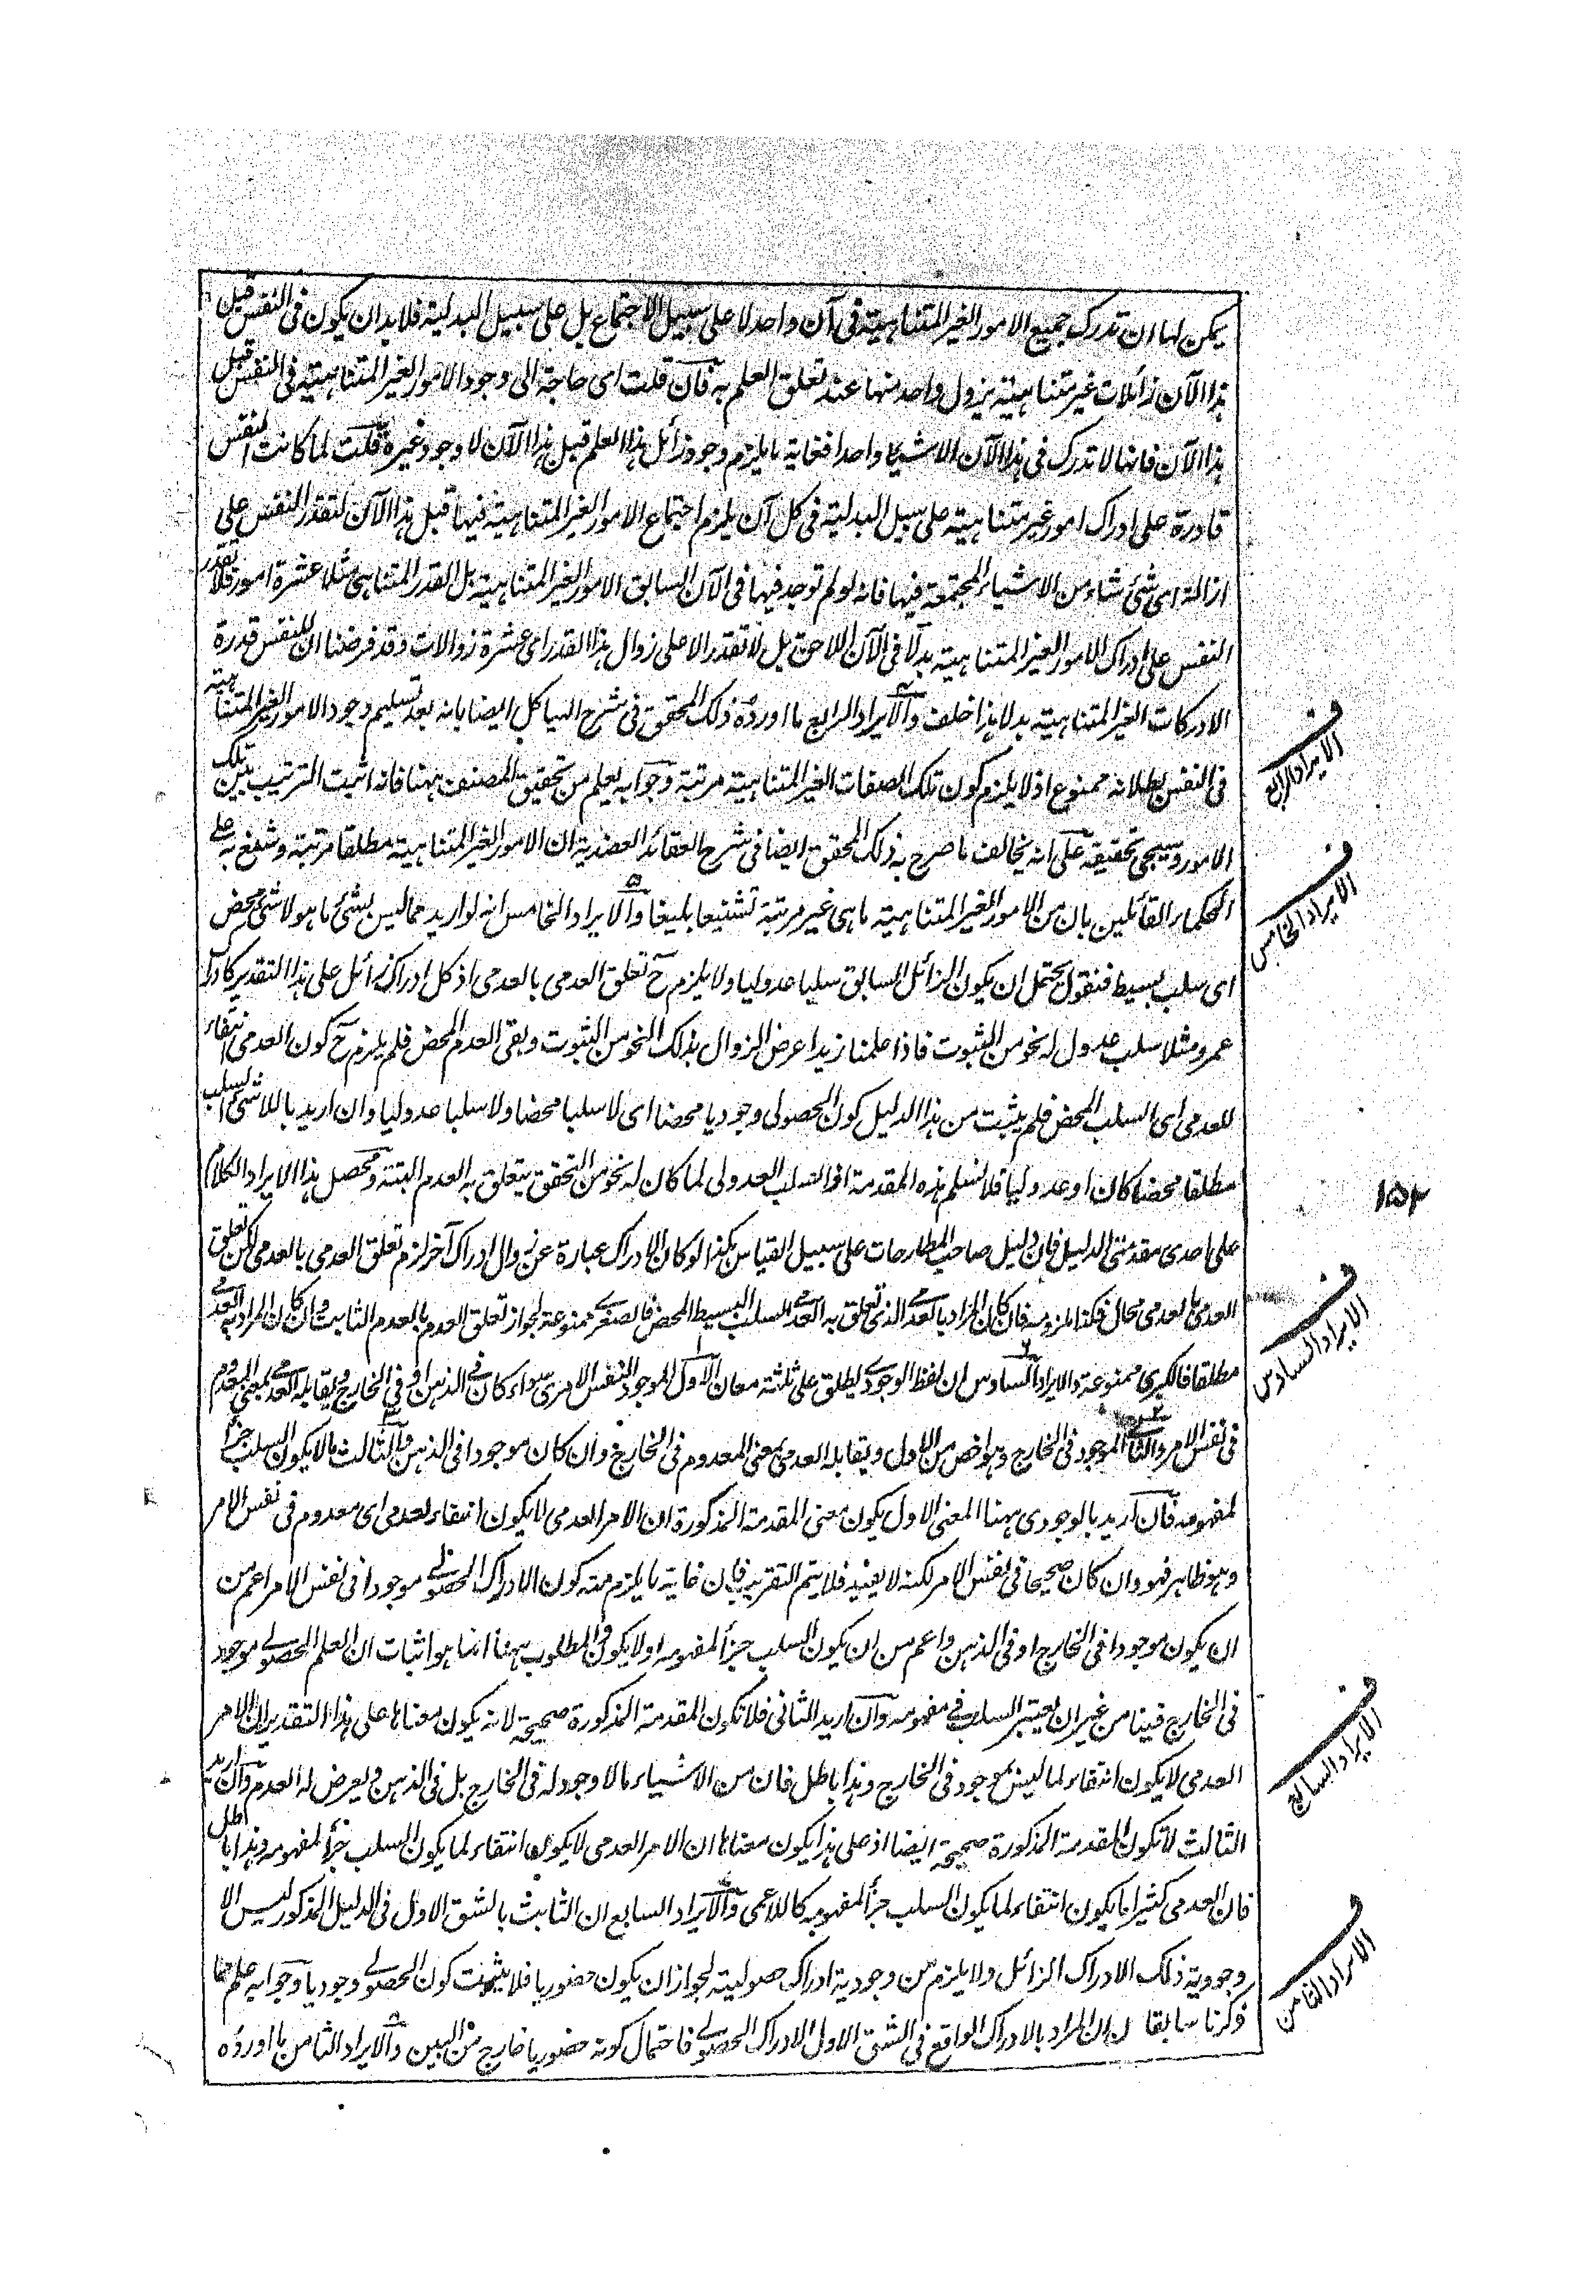 يمكن لها ان تدرك جميع الامور الغير المتناهية في آن واحد لا على سبيل الاجتماع بل على سبيل البدلية فلا بد ان يكون في النفس قبل
هذا الآن زائلات غير متناهية يزول واحد منها عند تعلق العلم به فان قلت اى حاجة الى وجود الامور الغير المتناهية في النفس قبل
هذا الآن فانها لا تدرك في هذا الآن الا شيئا واحدا فغاية ما يلزم وجود زائل هذا العلم قبل هذا الآن لا وجود غيره قلت لما كانت النفس
قادرة على ادراك امور غير متناهية على سبيل البدلية في كل آن يلزم اجتماع الامور الغير المتناهية فيها قبل هذا الآن لتقدر النفس على
ازالة اى شئ شاء من الاشياء المجتمعة فيها فانه لو لم توجد فيها في الآن السابق الامور الغير المتناهية بل القدر المتناهى مثلا عشرة امور فلا تقدر
النفس على ادراك الامور الغير المتناهية بدلا في الآن اللاحق بل لا تقدر الا على زوال هذا القدر اى عشرة زوالات وقد فرضنا ان للنفس قدرة
الادركات الغير المتناهية بدلا هذا خلف والايراد الرابع ما اورده ذلك المحقق في شرح الهياكل ايضا بانه بعد تسليم وجود الامور الغير المتناهية
في النفس بطلانه ممنوع اذ لا يلزم كون تلك الصفات الغير المتناهية مرتبة وجوابه يعلم من تحقيق المصنف ههنا فانه اثبت الترتيب بين تلك
الامور وسيجى تحقيقه على انه يخالف ما صرح به ذلك المحقق ايضا في شرح العقائد العضدية ان الامور الغير المتناهية مطلقا مرتبة وشنع به على
الحكماء القائلين بان من الامور الغير المتناهية ما هى غير مرتبة تشنيعا بليغا والايراد الخامس انه لو اريد مما ليس بشئ ما هو لا شئ محض
اى سلب بسيط فنقول يحتمل ان يكون الزائل السابق سلبا عدوليا ولا يلزم ح تعلق العدمى بالعدمى اذ كل ادراك زائل على هذا التقدير كادراك
عمرو مثلا سلب عدول له نحو من الثبوت فاذا علمنا زيدا عرض الزوال بذلك النحو من الثبوت وبقى العدم المحض فلم يلزم ح كون العدمى انتفاء
للعدمى اى السلب المحض فلم يثبت من هذا الدليل كون الحصولى وجوديا محضا اى لا سلبا محضا ولا سلبا عدوليا وان اريد باللا شئ السلب
مطلقا محضا كان او عدوليا فلا نسلم هذه المقدمة اذ السلب العدولى لما كان له نحو من التحقق يتعلق به العدم البتة ومحصل هذا الايراد الكلام
على احدى مقدمتى الدليل فان دليل صاحب المطارحات على سبيل القياس هكذا لو كان الادراك عبارة عن زوال ادراك آخر لزم تعلق العدمى بالعدمى لكن تعلق
العدمى بالعدمى محال فكذا ملزومه فان كان المراد بالعدمى الذى تعلق به العدمى السلب البسيط المحض فالصغرى ممنوعة لجواز تعلق العدم بالعدوم الثابت وان كان المراد به العدمى
مطلقا فالكبرى ممنوعة والايراد السادس ان لفظ الوجودى يطلق على ثلثة معان الاول الموجود النفس الامرى سواء كان في الذهن او في الخارج ويقابله العدمى بمعنى المعدوم
في نفس الامر والثانى الموجود في الخارج وهو اخص من الاول ويقابله العدمى بمعنى المعدوم في الخارج وان كان موجودا في الذهن والثالث ما لا يكون السلب جزأ
لمفهومه فان اريد بالوجودى ههنا المعنى الاول يكون معنى المقدمة المذكورة ان الامر العدمى لا يكون انتفاء لعدمى اى معدوم في نفس الامر
وهو ظاهر فهو وان كان صحيحا في نفس الامر لكنه لا يفيد فلا يتم التقريب فان غاية ما يلزم منه كون الادراك الحصولى موجودا في نفس الامر اعم من
ان يكون موجودا في الخارج او في الذهن واعم من ان يكون السلب جزأ لمفهومه او لا يكون والمطلوب ههنا انما هو اثبات ان العلم الحصولى موجود
في الخارج فينا من غير ان يعتبر السلب في مفهومه وان اريد الثانى فلا تكون المقدمة المذكورة صحيحة لانه يكون معناها على هذا التقدير ان الامر
العدمى لا يكون انتفاء لما ليس بموجود في الخارج وهذا باطل فان من الاشياء ما لا وجود له في الخارج بل في الذهن ويعرض له العدم وان اريد
الثالث لا تكون المقدمة المذكورة صحيحة ايضا اذ على هذا يكون معناها ان الامر العدمى لا يكون انتفاء لما يكون السلب جزأ لمفهومه وهذا باطل
فان العدمى كثيرا ما يكون انتفاء لما يكون السلب جزأ لمفهومه كاللاعمى والايراد السابع ان الثابت بالشق الاول في الدليل المذكور ليس الا
وجودية ذلك الادراك الزائل ولا يلزم من وجودية ادراك حصوليته لجواز ان يكون حضوريا فلا يثبت كون الحصولى وجوديا وجوابه علم مما
ذكرنا سابقا من ان المراد بالادراك الواقع في الشق الاول الادراك الحصولى فاحتمال كونه حضوريا خارج من البين والايراد الثامن ما اورده
ف
الايراد الرابع
ف
الايراد الخامس
١٥٢
ف
الايراد السادس
ف
الايراد السابع
ف
الايراد الثامن